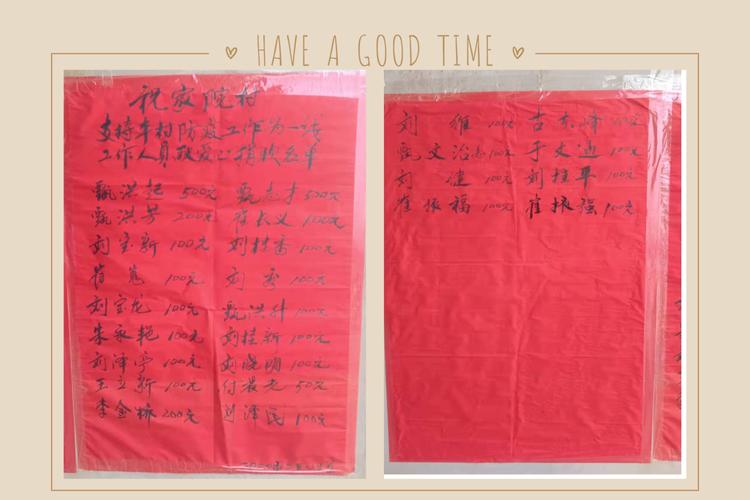 HAVE A GOOD TIME
祝家院村
支持本村防疫工作为一线
工作人员献爱心捐款名单
甄洪起 500元 甄志才 500元
甄洪芳 200元 崔长义 1000元
刘宝新 100元 刘桂香 100元
崔嵬 100元 刘 100元
刘宝龙 100元 甄洪升 100元
朱永艳 100元 刘桂新 100元
刘泽宇 100元 刘晓明 100元
王立新 100元 付 50元
李金桥 200元 刘泽民 100元
刘维 100元 古 峰 100元
甄文治 100元 于文迪 100元
刘健 100元 刘桂平 100元
崔振福 100元 崔振强 100元